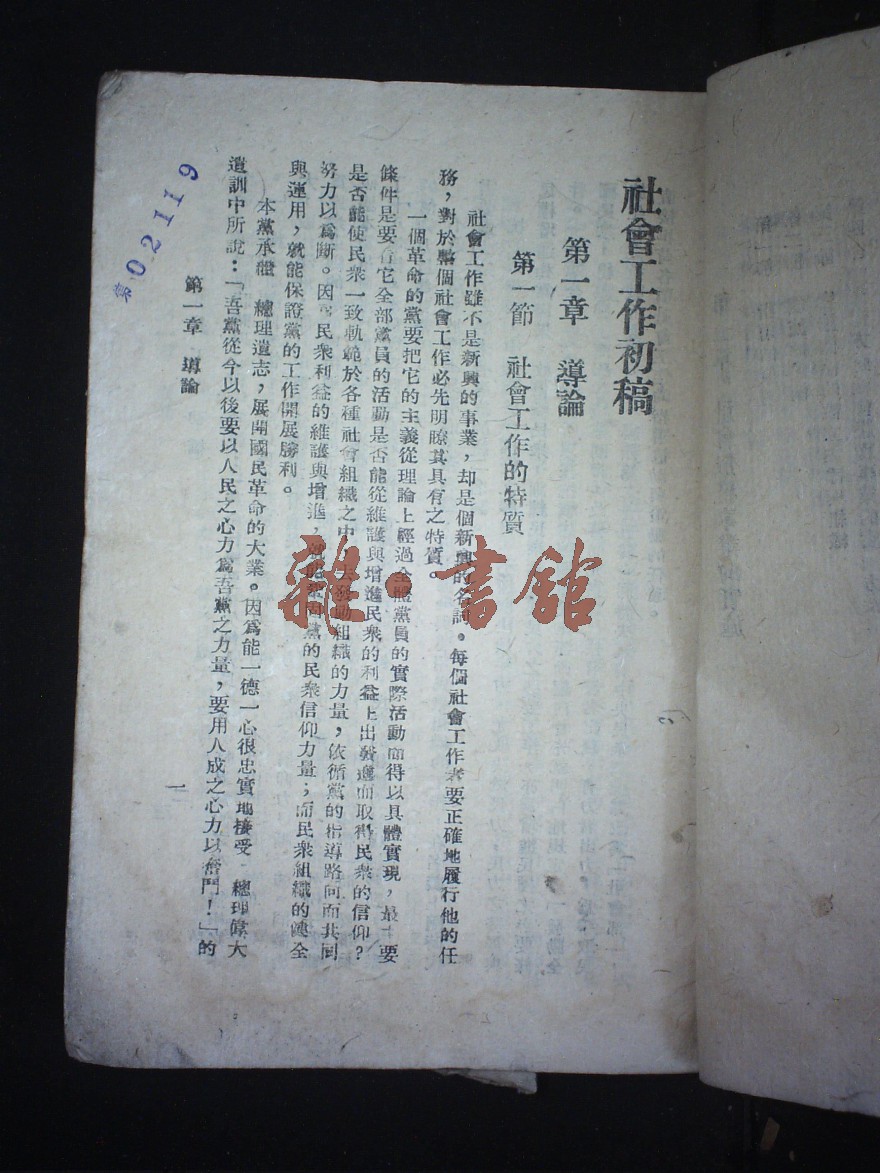 社會工作初稿
第一章　導論
第一節　社會工作的特質
社會工作雖不是新興的事業，却是個新興的名詞。每個社會工作者要正確地履行他的任
務，對於整個社會工作必先明瞭其具有之特質。
一個革命的黨要把它的主義從理論上經過全體黨員的實際活動而得以具體實現，最主要
條件是要看它全部黨員的活動是否能從維護與增進民衆的利益上出發進而取得民衆的信仰？
是否能使民衆一致軌範於各種社會組織之中，去發動組織的力量，依循黨的指導路向而共同
努力以爲斷。因爲民衆利益的維護與增進，就能鞏固黨的民衆信仰力量；而民衆組織的健全
與運用，就能保證黨的工作開展勝利。
本黨承繼　總理遺志，展開國民革命的大業。因爲能一德一心很忠實地接受　總理偉大
遺訓中所說：「吾黨從今以後要以人民之心力爲吾黨之力量，要用人民之心力以奮鬥！」的
第一章　導論
一
02119
雜·書館